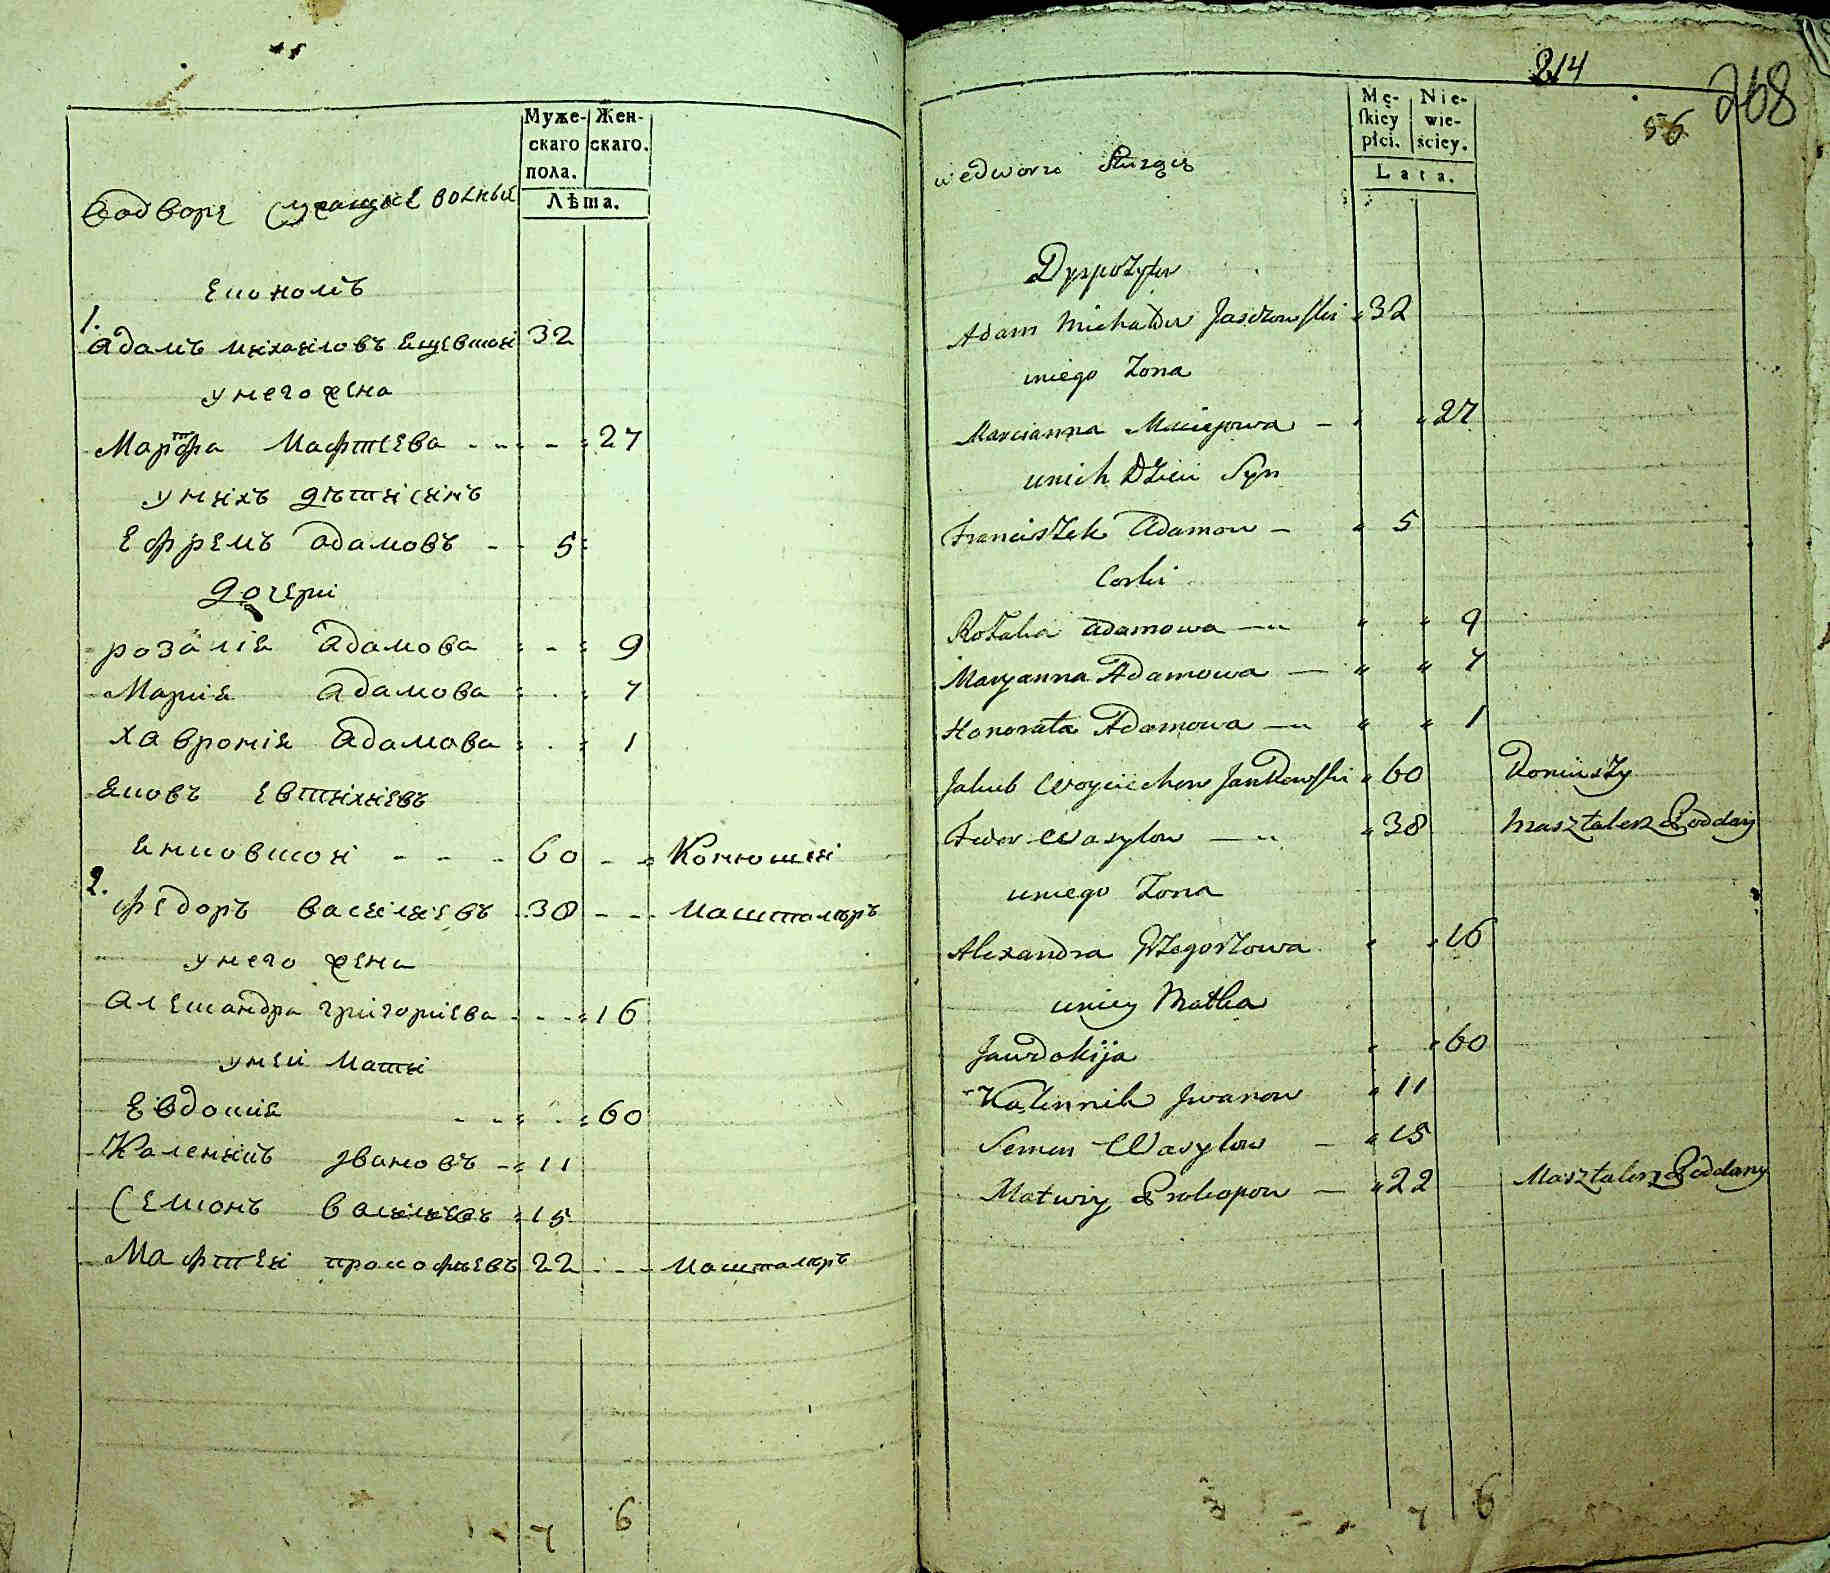 Муже-
скаго
пола.
Жен-
скаго.
Лѣта.
Во дворе служащие волные
Економъ
1.
Адамъ Михаиловъ Ящевскиі 32
у него жена
Марфа Мафтеева - - - 27
у нихъ дѣти синъ
Ефремъ Адамовъ - - 5
дочери
розалия Адамова - 9
Мария Адамова 7
Хаврония Адамова 1
Яковъ Евтихиевъ
Янковскоі - - - 60 - - Конюший
2.
Федоръ Василиевъ 38 - - - Машталѣръ
у него жена
Александра Григориева - - - 16
у неи мати
Евдокия - - - 60
Каленикъ Ивановъ - 11
Семионъ Василиевъ 15
Мафтеи Прокофиевъ 22 - - - Машталѣръ
7 6
214
268
56
Mę-
ſkiey
płci.
Nie-
wie-
ściey.
Lata.
wedworze Służący
Dyspozytor
Adam Michałow Jaszowſki 32
uniego Zona
Marcianna Macieiowa - 27
unich Dzieci Syn
Franciszek Adamow - 5
Corki
Rozalia Adamowa - 9
Maryanna Adamowa - 7
Honorata Adamowa - 1
Jakub Woyciechow Jankowſki 60 Koniuszy
Fedor Wasylow - 38 Masztalerz Poddany
uniego Zona
Alexandra Grzegorzowa 16
uniey Matka
Jawdokija 60
Kalinnik Jwanow 11
Semen Wasylow - 15
Matwiy Prokopow - 22 Masztalerz Poddany
7 6